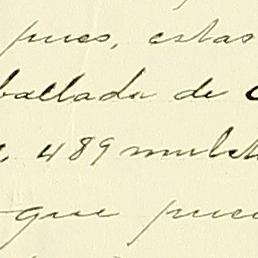 pues, estas
ballada de
489 mulet
que pue